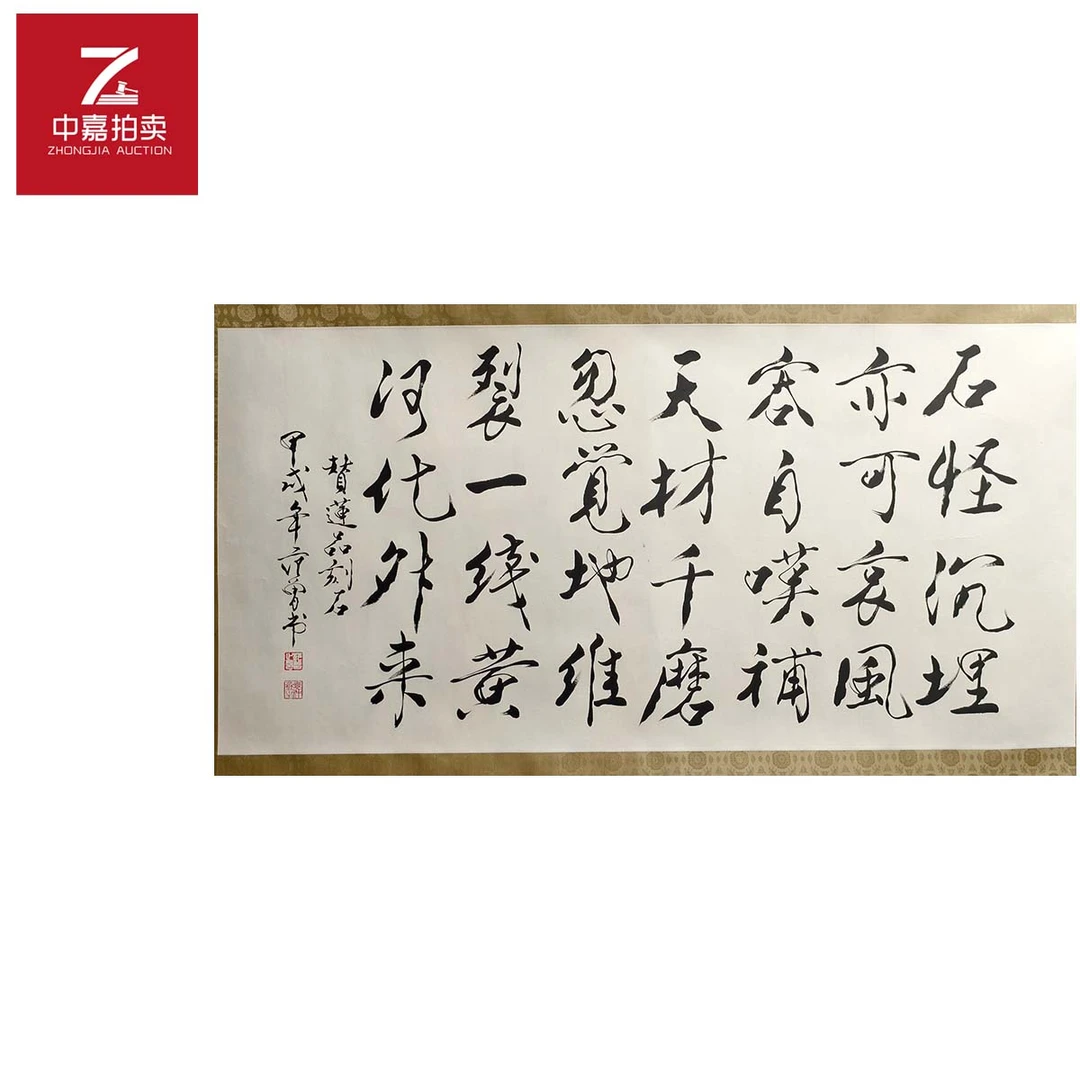 中嘉拍卖
ZHONGJIA AUCTION
石怪沉埋
亦可哀風
害自嘆補
天材千磨
忽覺地維
裂一线黄
河化外来
賛蓮品刻石
甲戌年范曾书